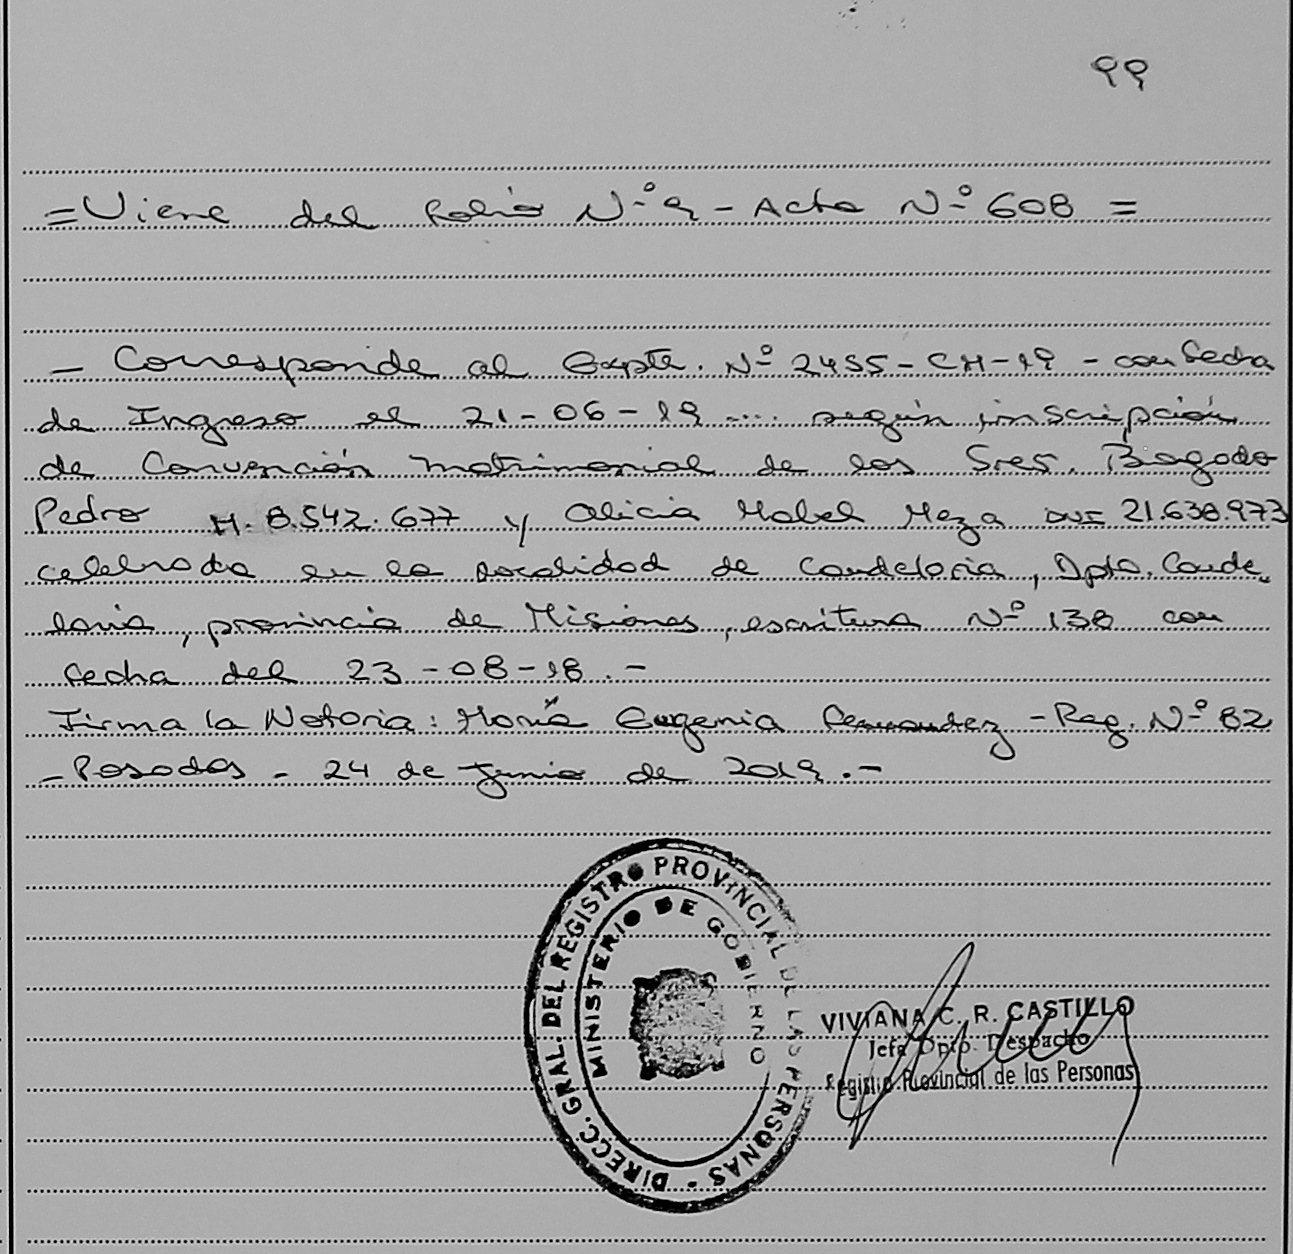 99
= Viene del folio Nº 9 - Acta Nº 608 =
- Corresponde al Expte. Nº 2455-CM-19 - con fecha
de Ingreso el 21-06-19 .... según inscripción
de Convención matrimonial de los Sres. Bogado
Pedro M. 8.542.677 y Alicia Mabel Meza DNI 21.638.973
celebrada en la localidad de Candelaria, Dpto. Cande-
laria, provincia de Misiones, escritura Nº 138 con
fecha del 23-08-18.-
Firma la Notaria: María Eugenia Fernandez - Reg. Nº 82
- Posadas - 24 de Junio de 2019.-
DIRECC. GRAL. DEL REGISTRO PROVINCIAL DE LAS PERSONAS -
MINISTERIO DE GOBIERNO
VIVIANA C. R. CASTILLO
Jefa Dpto. Despacho
Registro Provincial de las Personas